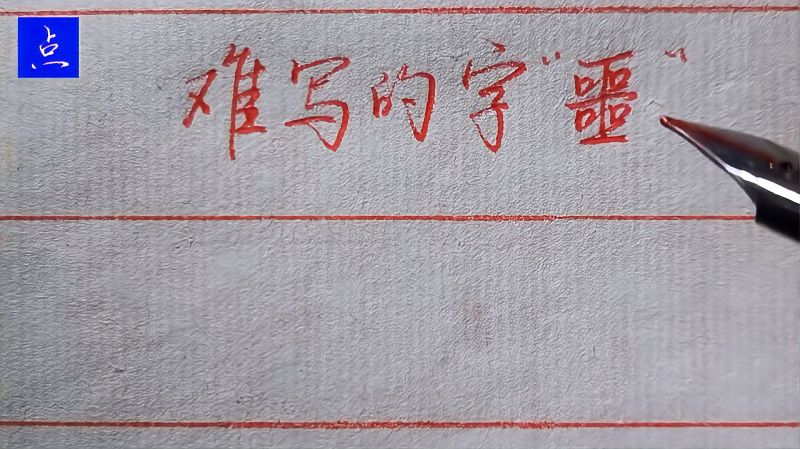 点
难写的字“噩”